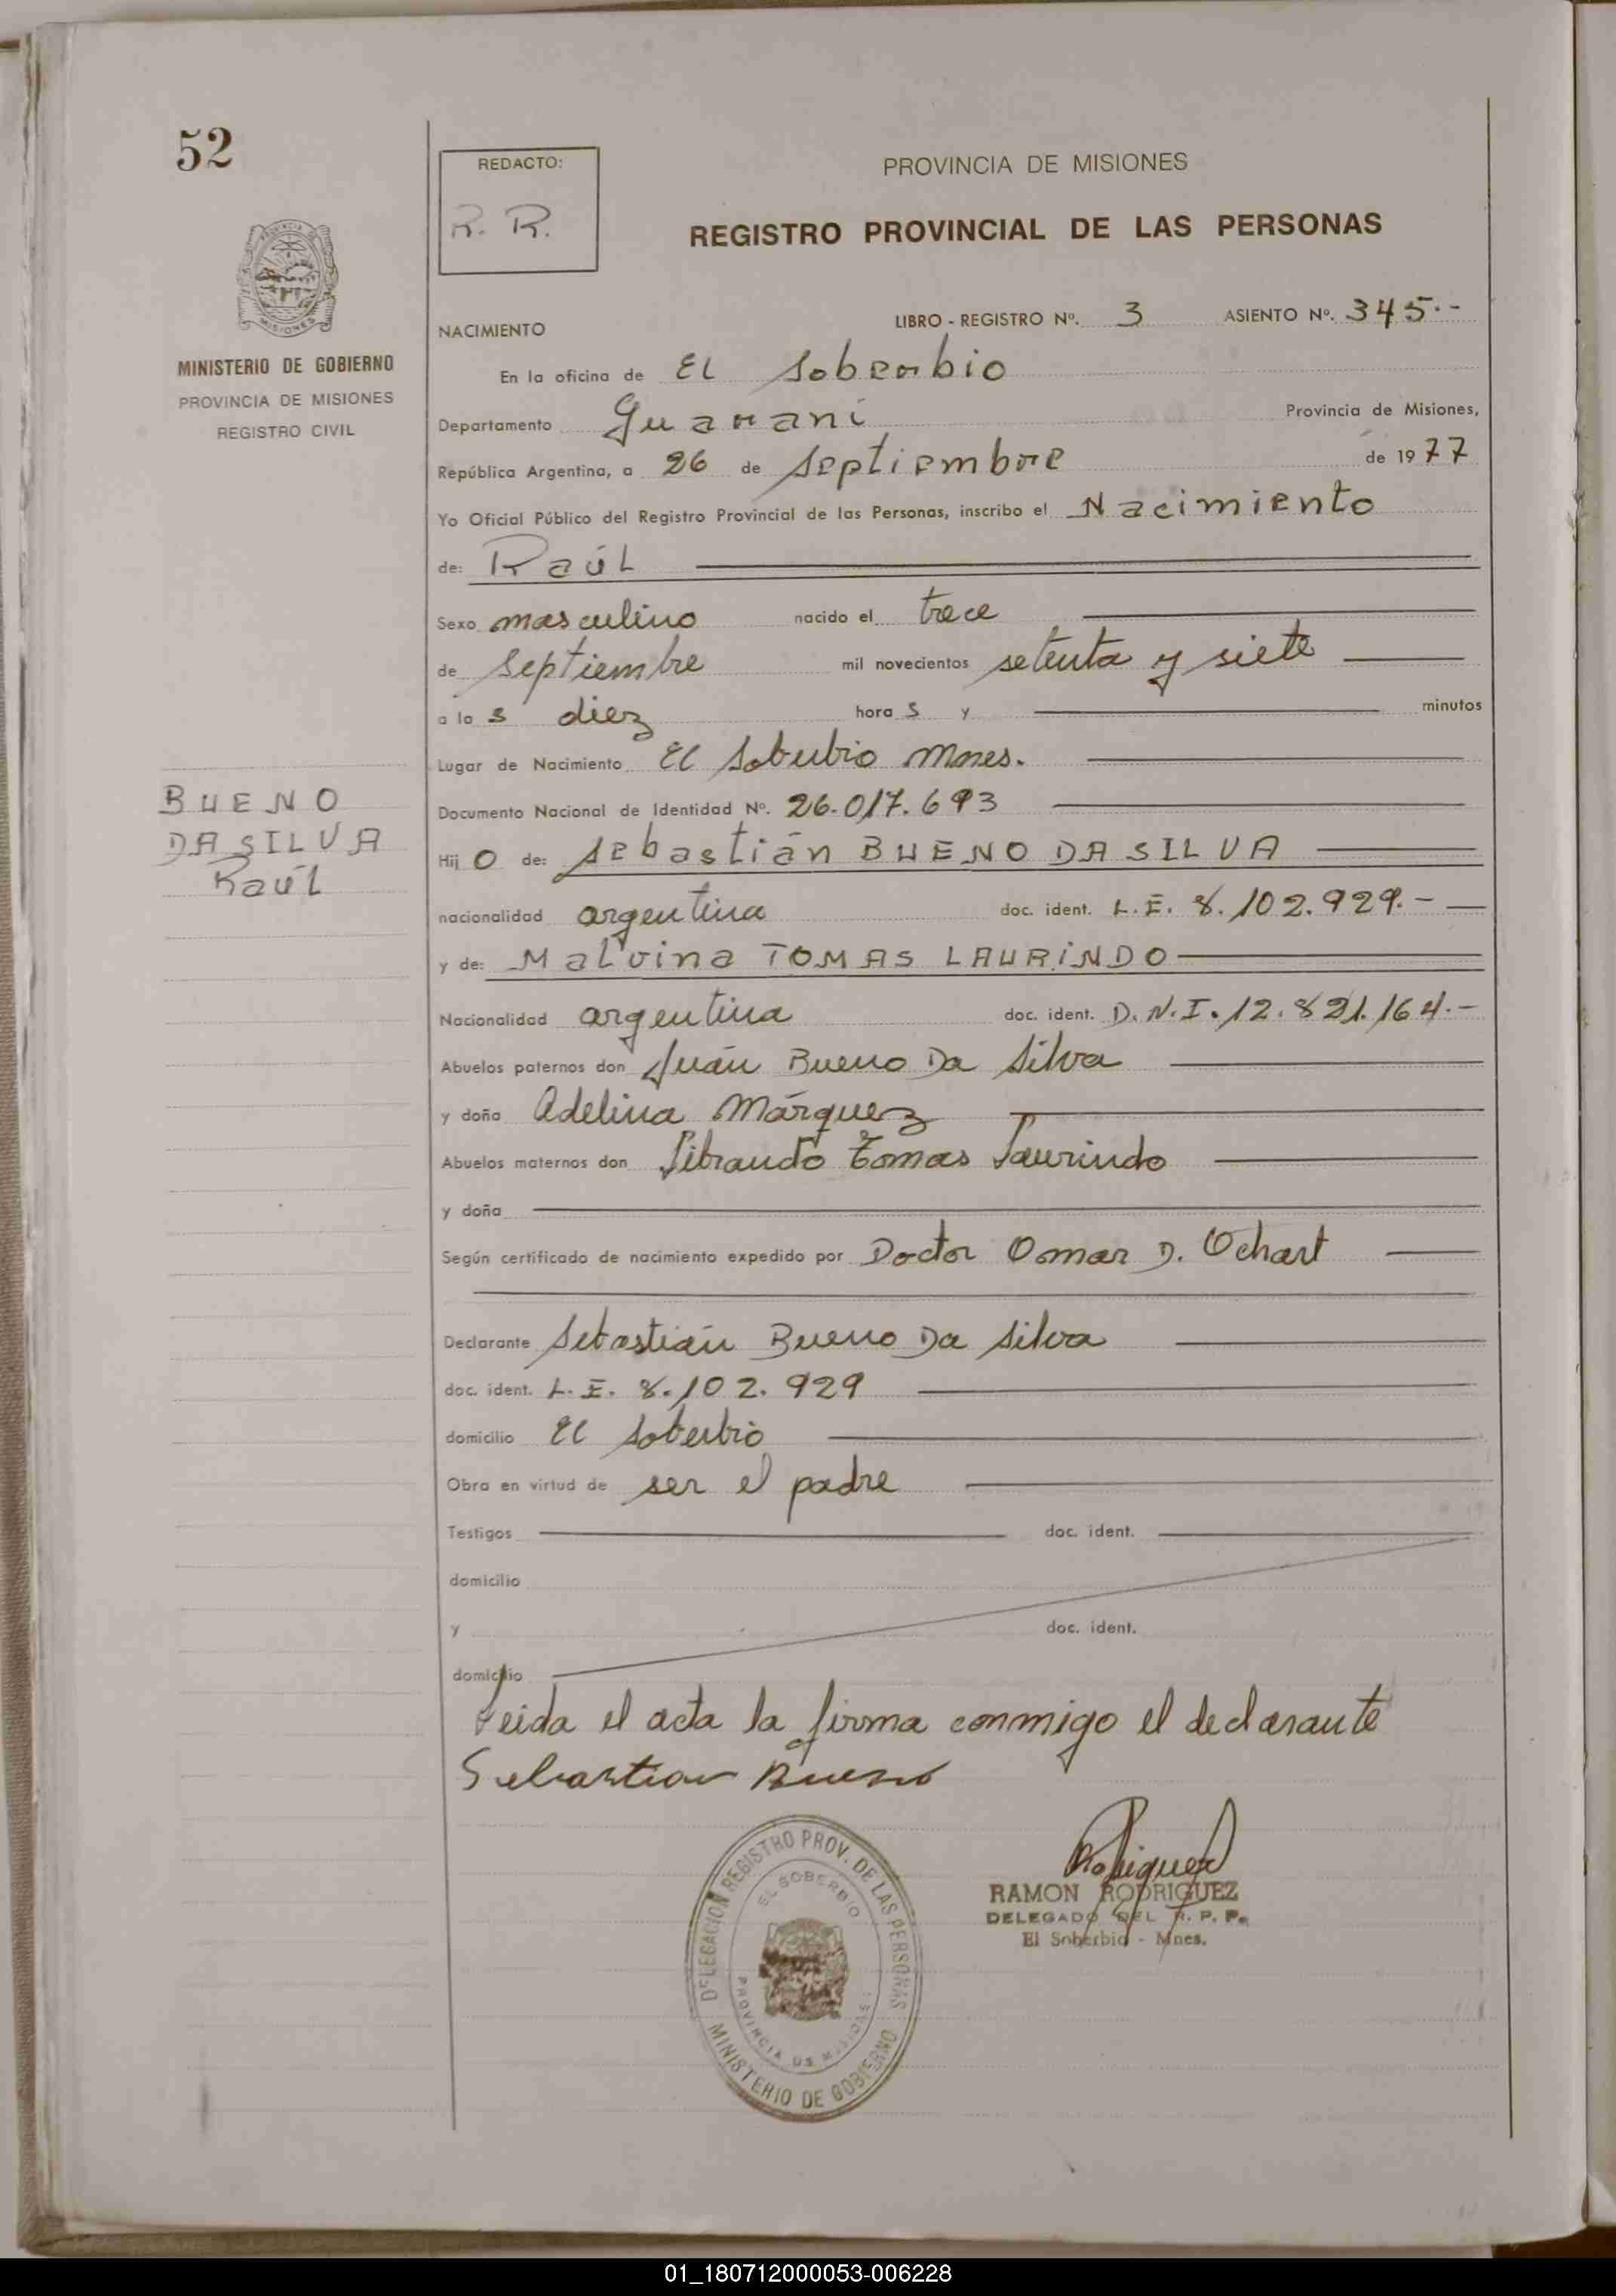 52
REDACTO:
R. R.
PROVINCIA DE MISIONES
REGISTRO PROVINCIAL DE LAS PERSONAS
MISIONES
MINISTERIO DE GOBIERNO
PROVINCIA DE MISIONES
REGISTRO CIVIL
NACIMIENTO LIBRO - REGISTRO Nº. 3 ASIENTO Nº. 345.-
En la oficina de El Soberbio
Departamento Guaraní Provincia de Misiones,
República Argentina, a 26 de Septiembre de 1977
Yo Oficial Público del Registro Provincial de las Personas, inscribo el Nacimiento
de: Raúl
Sexo masculino nacido el trece
de Septiembre mil novecientos setenta y siete
a las diez horas y minutos
Lugar de Nacimiento El Soberbio Mnes.
Documento Nacional de Identidad Nº. 26.017.693
BUENO
DA SILVA
Raúl
Hijo de: Sebastián BUENO DA SILVA
nacionalidad argentina doc. ident. L.E. 8.102.929.-
y de: Malvina TOMAS LAURINDO
Nacionalidad argentina doc. ident. D.N.I. 12.821.164.-
Abuelos paternos don Juán Bueno Da Silva
y doña Adelina Márquez
Abuelos maternos don Librando Tomas Laurindo
y doña
Según certificado de nacimiento expedido por Doctor Omar D. Ochart
Declarante Sebastián Bueno Da Silva
doc. ident. L.E. 8.102.929
domicilio El Soberbio
Obra en virtud de ser el padre
Testigos doc. ident.
domicilio
y doc. ident.
domicilio
Leida el acta la firma conmigo el declarante
Sebastian Bueno
DELEGACION REGISTRO PROV. DE LAS PERSONAS
EL SOBERBIO
PROVINCIA DE MISIONES
MINISTERIO DE GOBIERNO
Rodriguez
RAMON RODRIGUEZ
DELEGADO DEL R. P. P.
El Soberbio - Mnes.
01_180712000053-006228